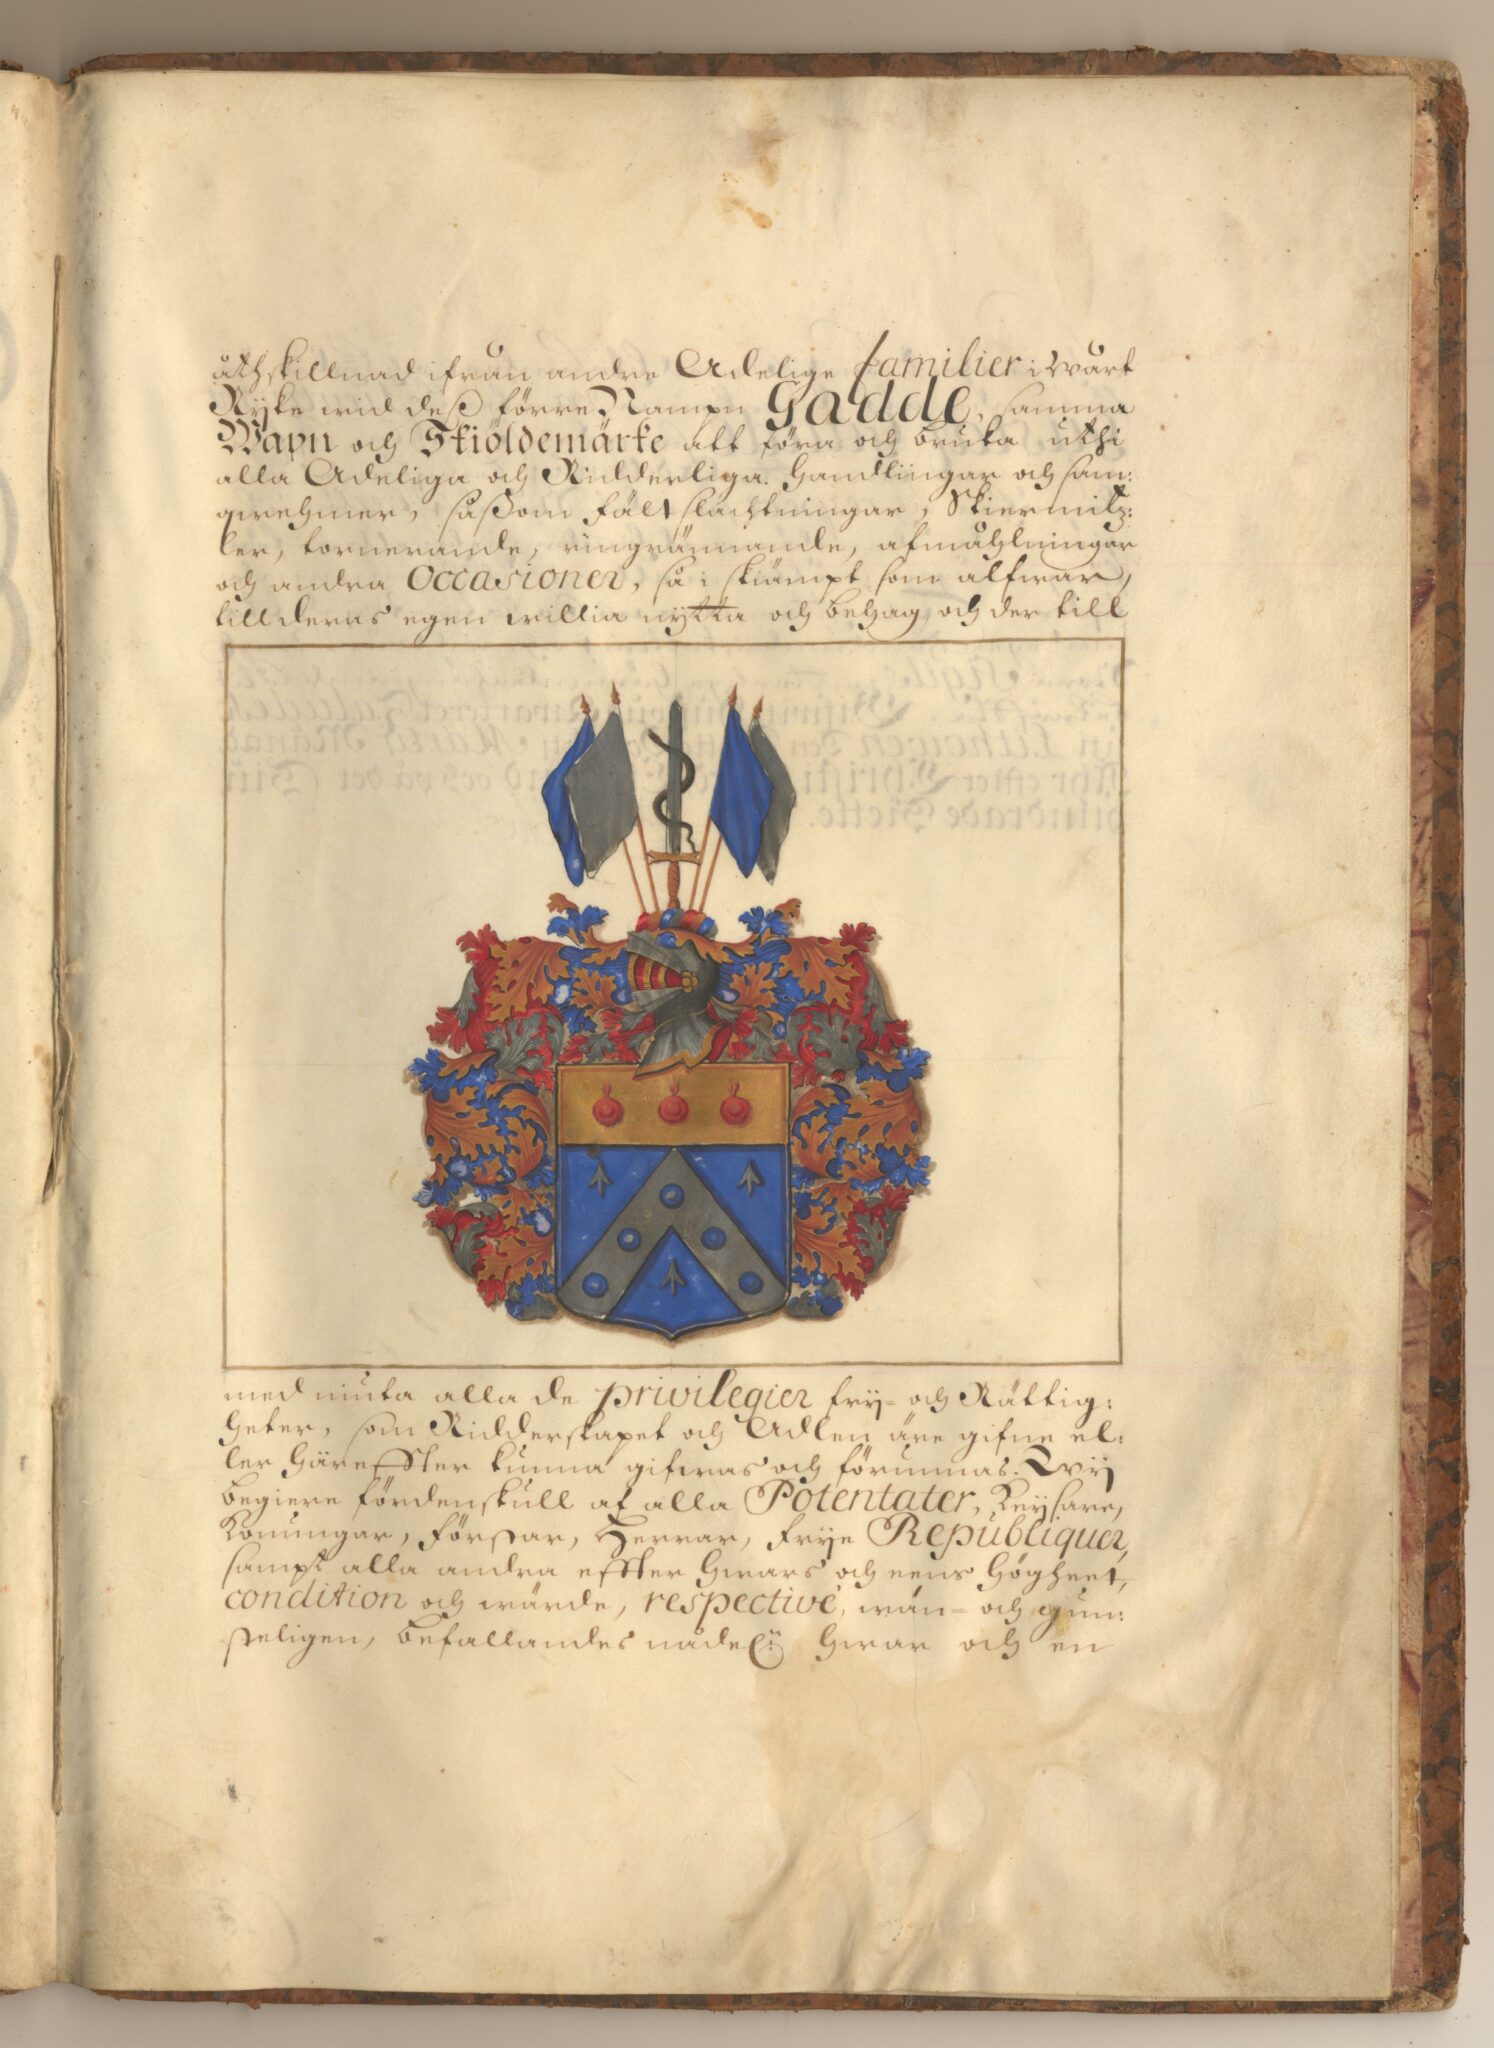 åthskillnad ifrån andre Adelige familier i wårt
Rijke wid deß förre Nampn Gadde, samma
Wapn och Skiöldemärke att föra och bruka uthi
alla Adeliga och Ridderliga Handlingar och sam:
qwehmer, såßom fältslachtningar, Skiermitz:
ler, tornerande, ringrännande, afmåhlningar
och andra Occasioner, så i skiämpt som alfwar,
till deras egen willia nytta och behag, och der till
med niuta alla de privilegier fry- och Rättig:
heter, som Ridderskapet och Adlen äre gifne el:
ler häreffter kunna gifwas och förunnas. Wij
begiere fördenskull af alla Potentater, Keysare,
Konungar, förstar, Herrar, frije Republiquer,
sampt alla andra effter hwars och eens högheet,
condition och wärde, respectivè, wän- och gun:
steligen, befallandes nådel: hwar och en